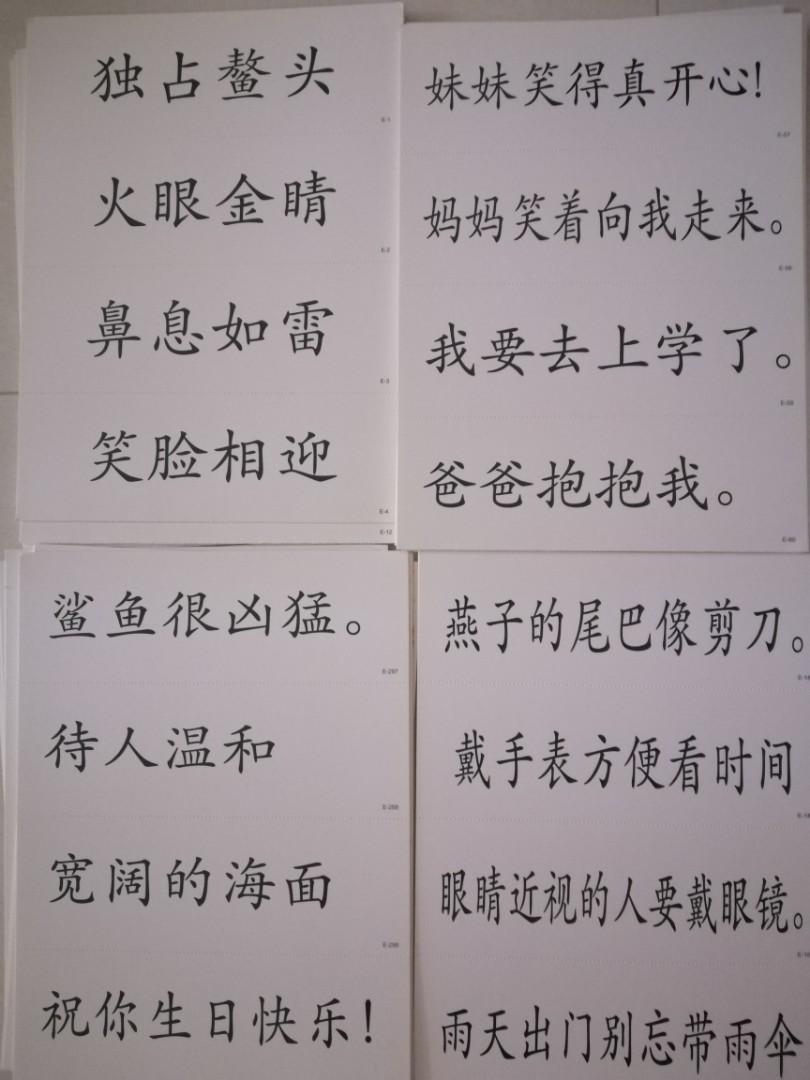 独占鳌头
E-1
火眼金睛
E-2
鼻息如雷
E-3
笑脸相迎
E-4
E-12
妹妹笑得真开心!
E-57
妈妈笑着向我走来。
E-58
我要去上学了。
E-59
爸爸抱抱我。
E-60
鲨鱼很凶猛。
E-297
待人温和
E-298
宽阔的海面
E-299
祝你生日快乐!
燕子的尾巴像剪刀。
戴手表方便看时间
眼睛近视的人要戴眼镜。
雨天出门别忘带雨伞